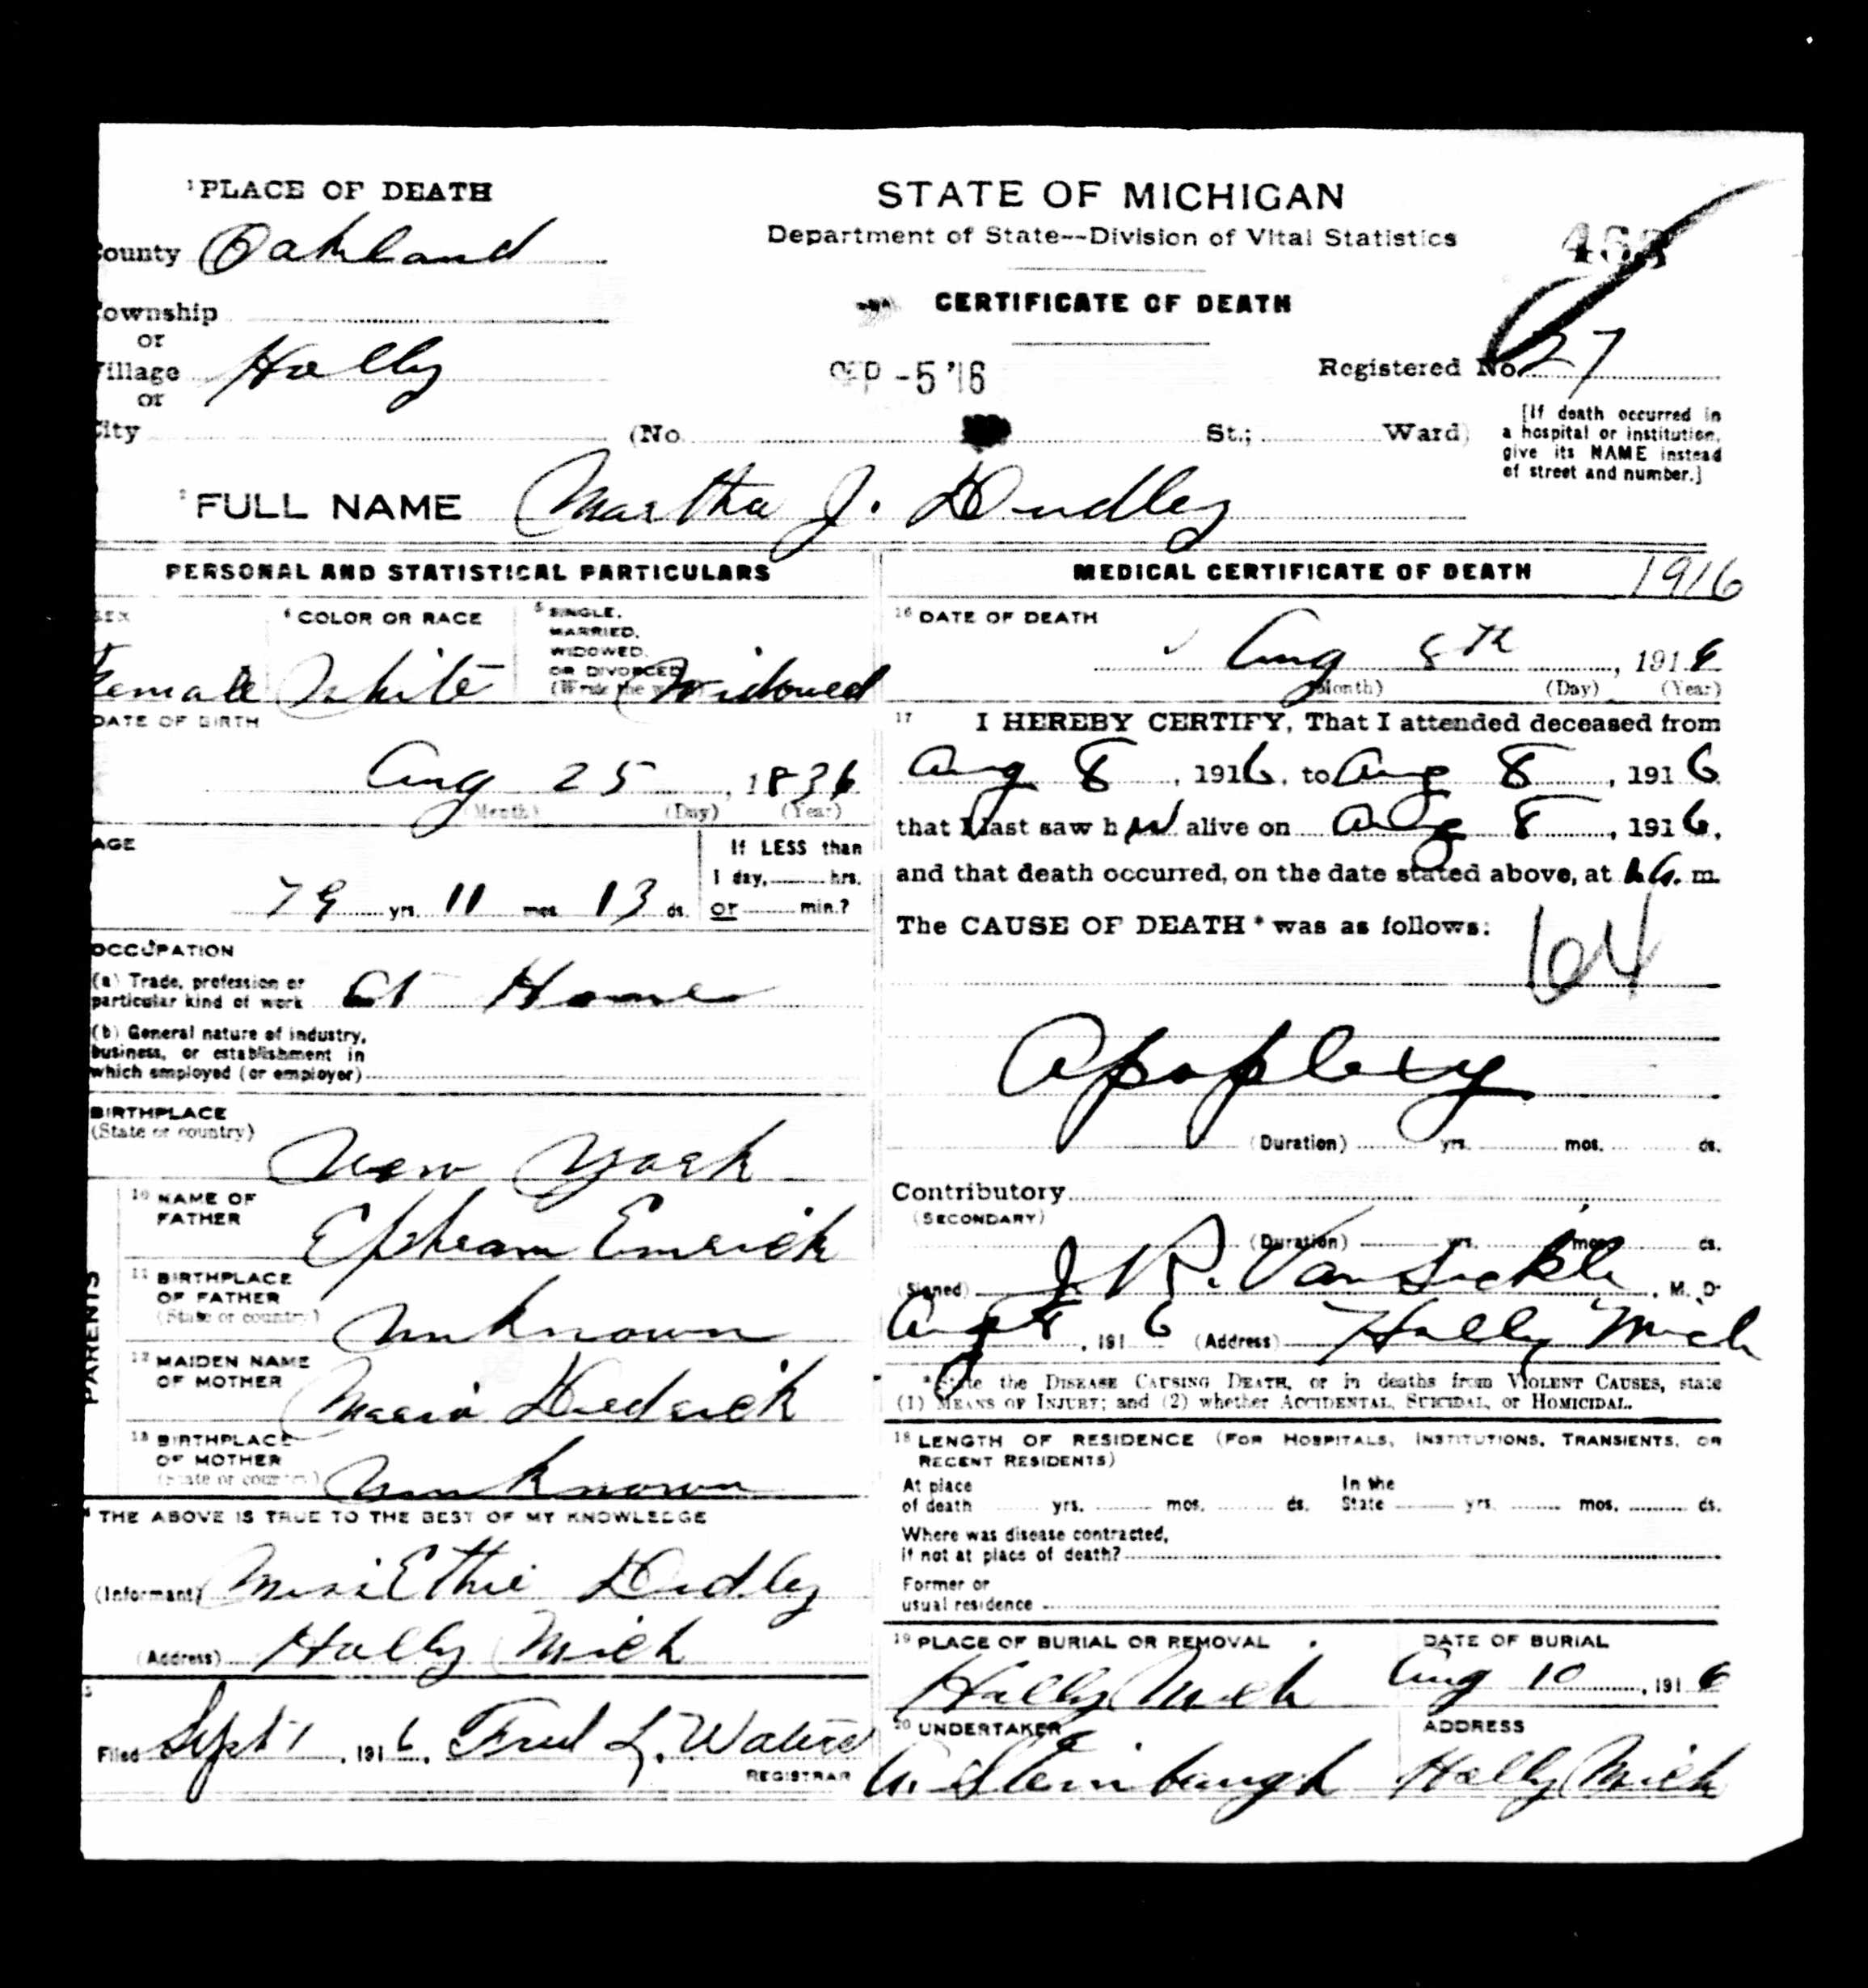 1 PLACE OF DEATH
County Oakland
Township
or
Village Holly
or
City (No. St.; Ward)
STATE OF MICHIGAN
Department of State--Division of Vital Statistics
CERTIFICATE OF DEATH
SEP -5 '16
Registered No. 27
[If death occurred in
a hospital or institution,
give its NAME instead
of street and number.]
2 FULL NAME Martha J. Dudley
PERSONAL AND STATISTICAL PARTICULARS
SEX
Female
4 COLOR OR RACE
White
5 SINGLE,
MARRIED,
WIDOWED,
OR DIVORCED
(Write the w
Widowed
DATE OF BIRTH
Aug 25, 1836
(Month) (Day) (Year)
AGE
79 yrs. 11 mos. 13 ds.
If LESS than
1 day, hrs.
or min.?
OCCUPATION
(a) Trade, profession or
particular kind of work At Home
(b) General nature of industry,
business, or establishment in
which employed (or employer)
BIRTHPLACE
(State or country)
New York
PARENTS
10 NAME OF
FATHER
Ephream Emrick
11 BIRTHPLACE
OF FATHER
(State or country)
Unknown
12 MAIDEN NAME
OF MOTHER
Maria Dedrick
13 BIRTHPLACE
OF MOTHER
(State or country)
Unknown
THE ABOVE IS TRUE TO THE BEST OF MY KNOWLEDGE
(Informant) Dudley
(Address) Holly Mich
Filed Sept 1, 1916, Fred L. Waters
REGISTRAR
MEDICAL CERTIFICATE OF DEATH 1916
16 DATE OF DEATH
Aug 8th, 1916
(Month) (Day) (Year)
17 I HEREBY CERTIFY, That I attended deceased from
Aug 8, 1916, to Aug 8, 1916
that I last saw her alive on Aug 8, 1916,
and that death occurred, on the date stated above, at A. m.
The CAUSE OF DEATH * was as follows:
64
Apoplexy
(Duration) yrs. mos. ds.
Contributory
(SECONDARY)
(Duration) yrs. mos. ds.
(Signed) J. R. VanSickle, M. D.
Aug 8, 1916 (Address) Holly Mich
* State the DISEASE CAUSING DEATH, or in deaths from VIOLENT CAUSES, state
(1) MEANS OF INJURY; and (2) whether ACCIDENTAL, SUICIDAL, or HOMICIDAL.
18 LENGTH OF RESIDENCE (FOR HOSPITALS, INSTITUTIONS, TRANSIENTS, OR
RECENT RESIDENTS)
At place
of death yrs. mos. ds.
In the
State yrs. mos. ds.
Where was disease contracted,
if not at place of death?
Former or
usual residence
19 PLACE OF BURIAL OR REMOVAL
Holly Mich
DATE OF BURIAL
Aug 10, 1916
20 UNDERTAKER
A. Steinbaugh
ADDRESS
Holly Mich